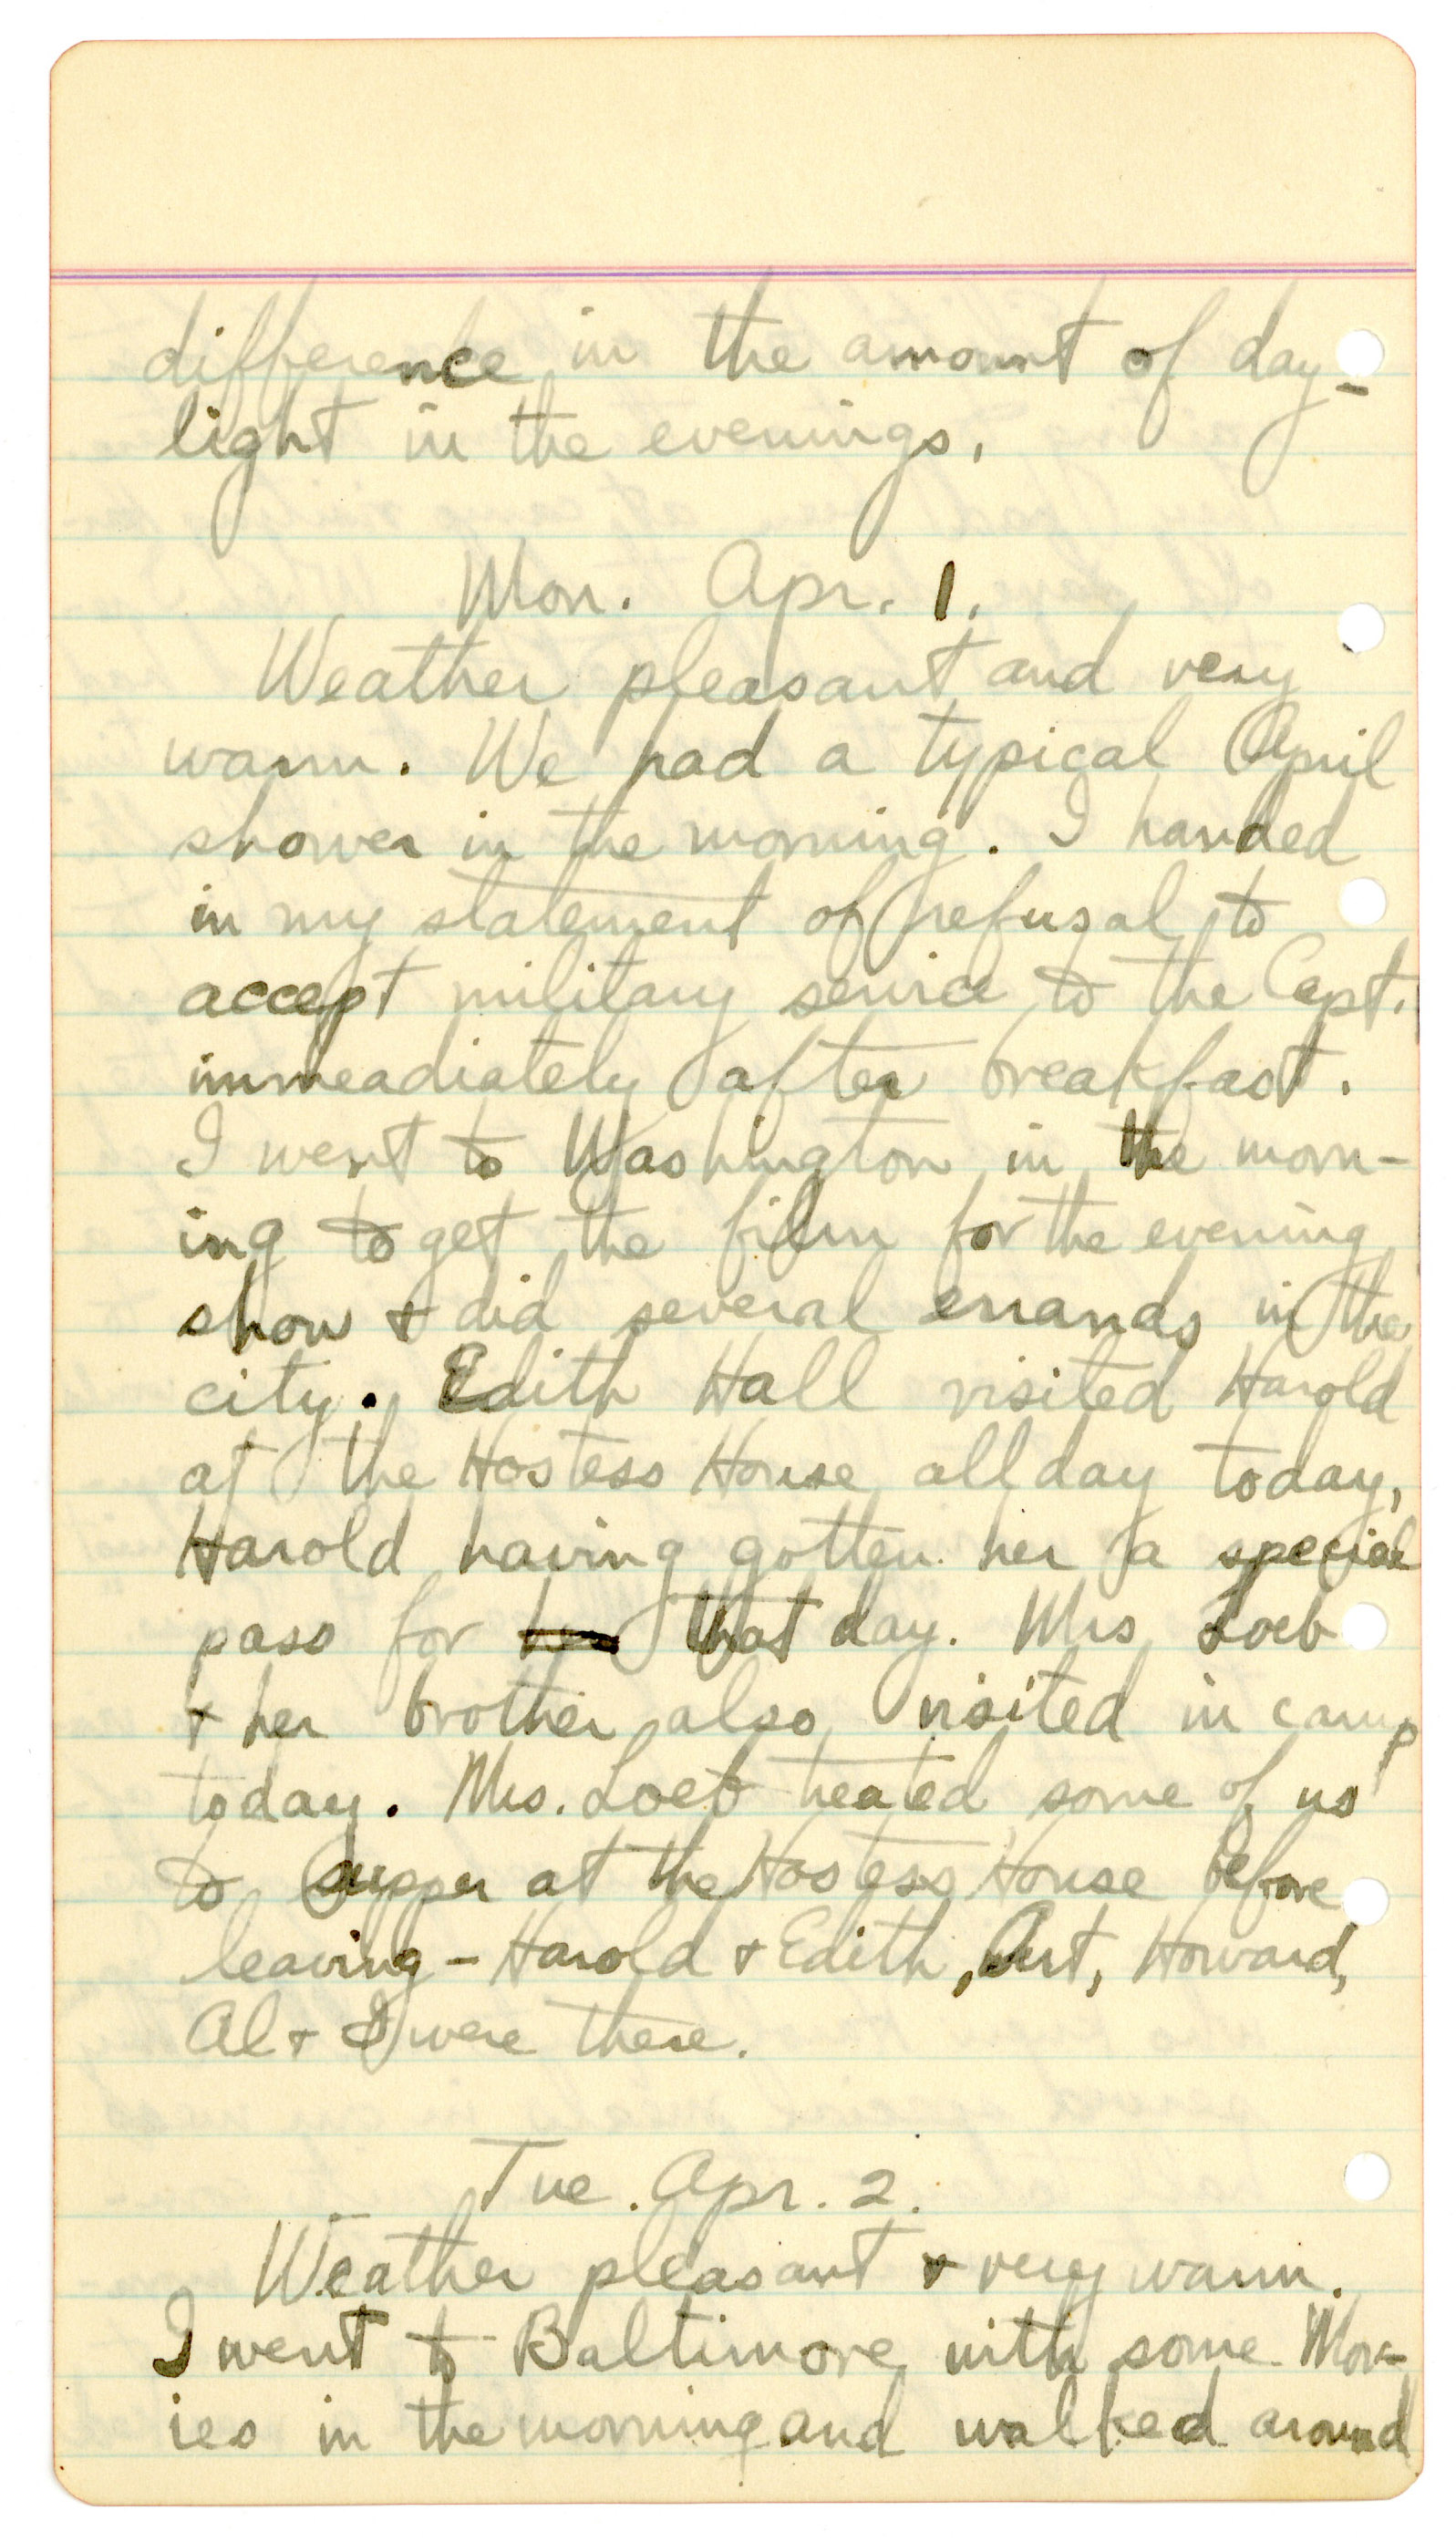 difference in the amount of day-
light in the evenings.
Mon. Apr. 1.
Weather pleasant and very
warm. We had a typical April
shower in the morning. I handed
in my statement of refusal to
accept military service to the Capt.
immeadiately after breakfast.
I went to Washington in the morn-
ing to get the film for the evening
show + did several errands in the
city. Edith Hall visited Harold
at the Hostess House all day today,
Harold having gotten her a special
pass for that day. Mrs Loeb
+ her brother also visited in camp
today. Mrs. Loeb treated some of us
to supper at the Hostess House before
leaving - Harold + Edith, Art, Howard,
Al + I were there.
Tue. Apr. 2.
Weather pleasant + very warm.
I went to Baltimore with some Mov-
ies in the morning and walked around